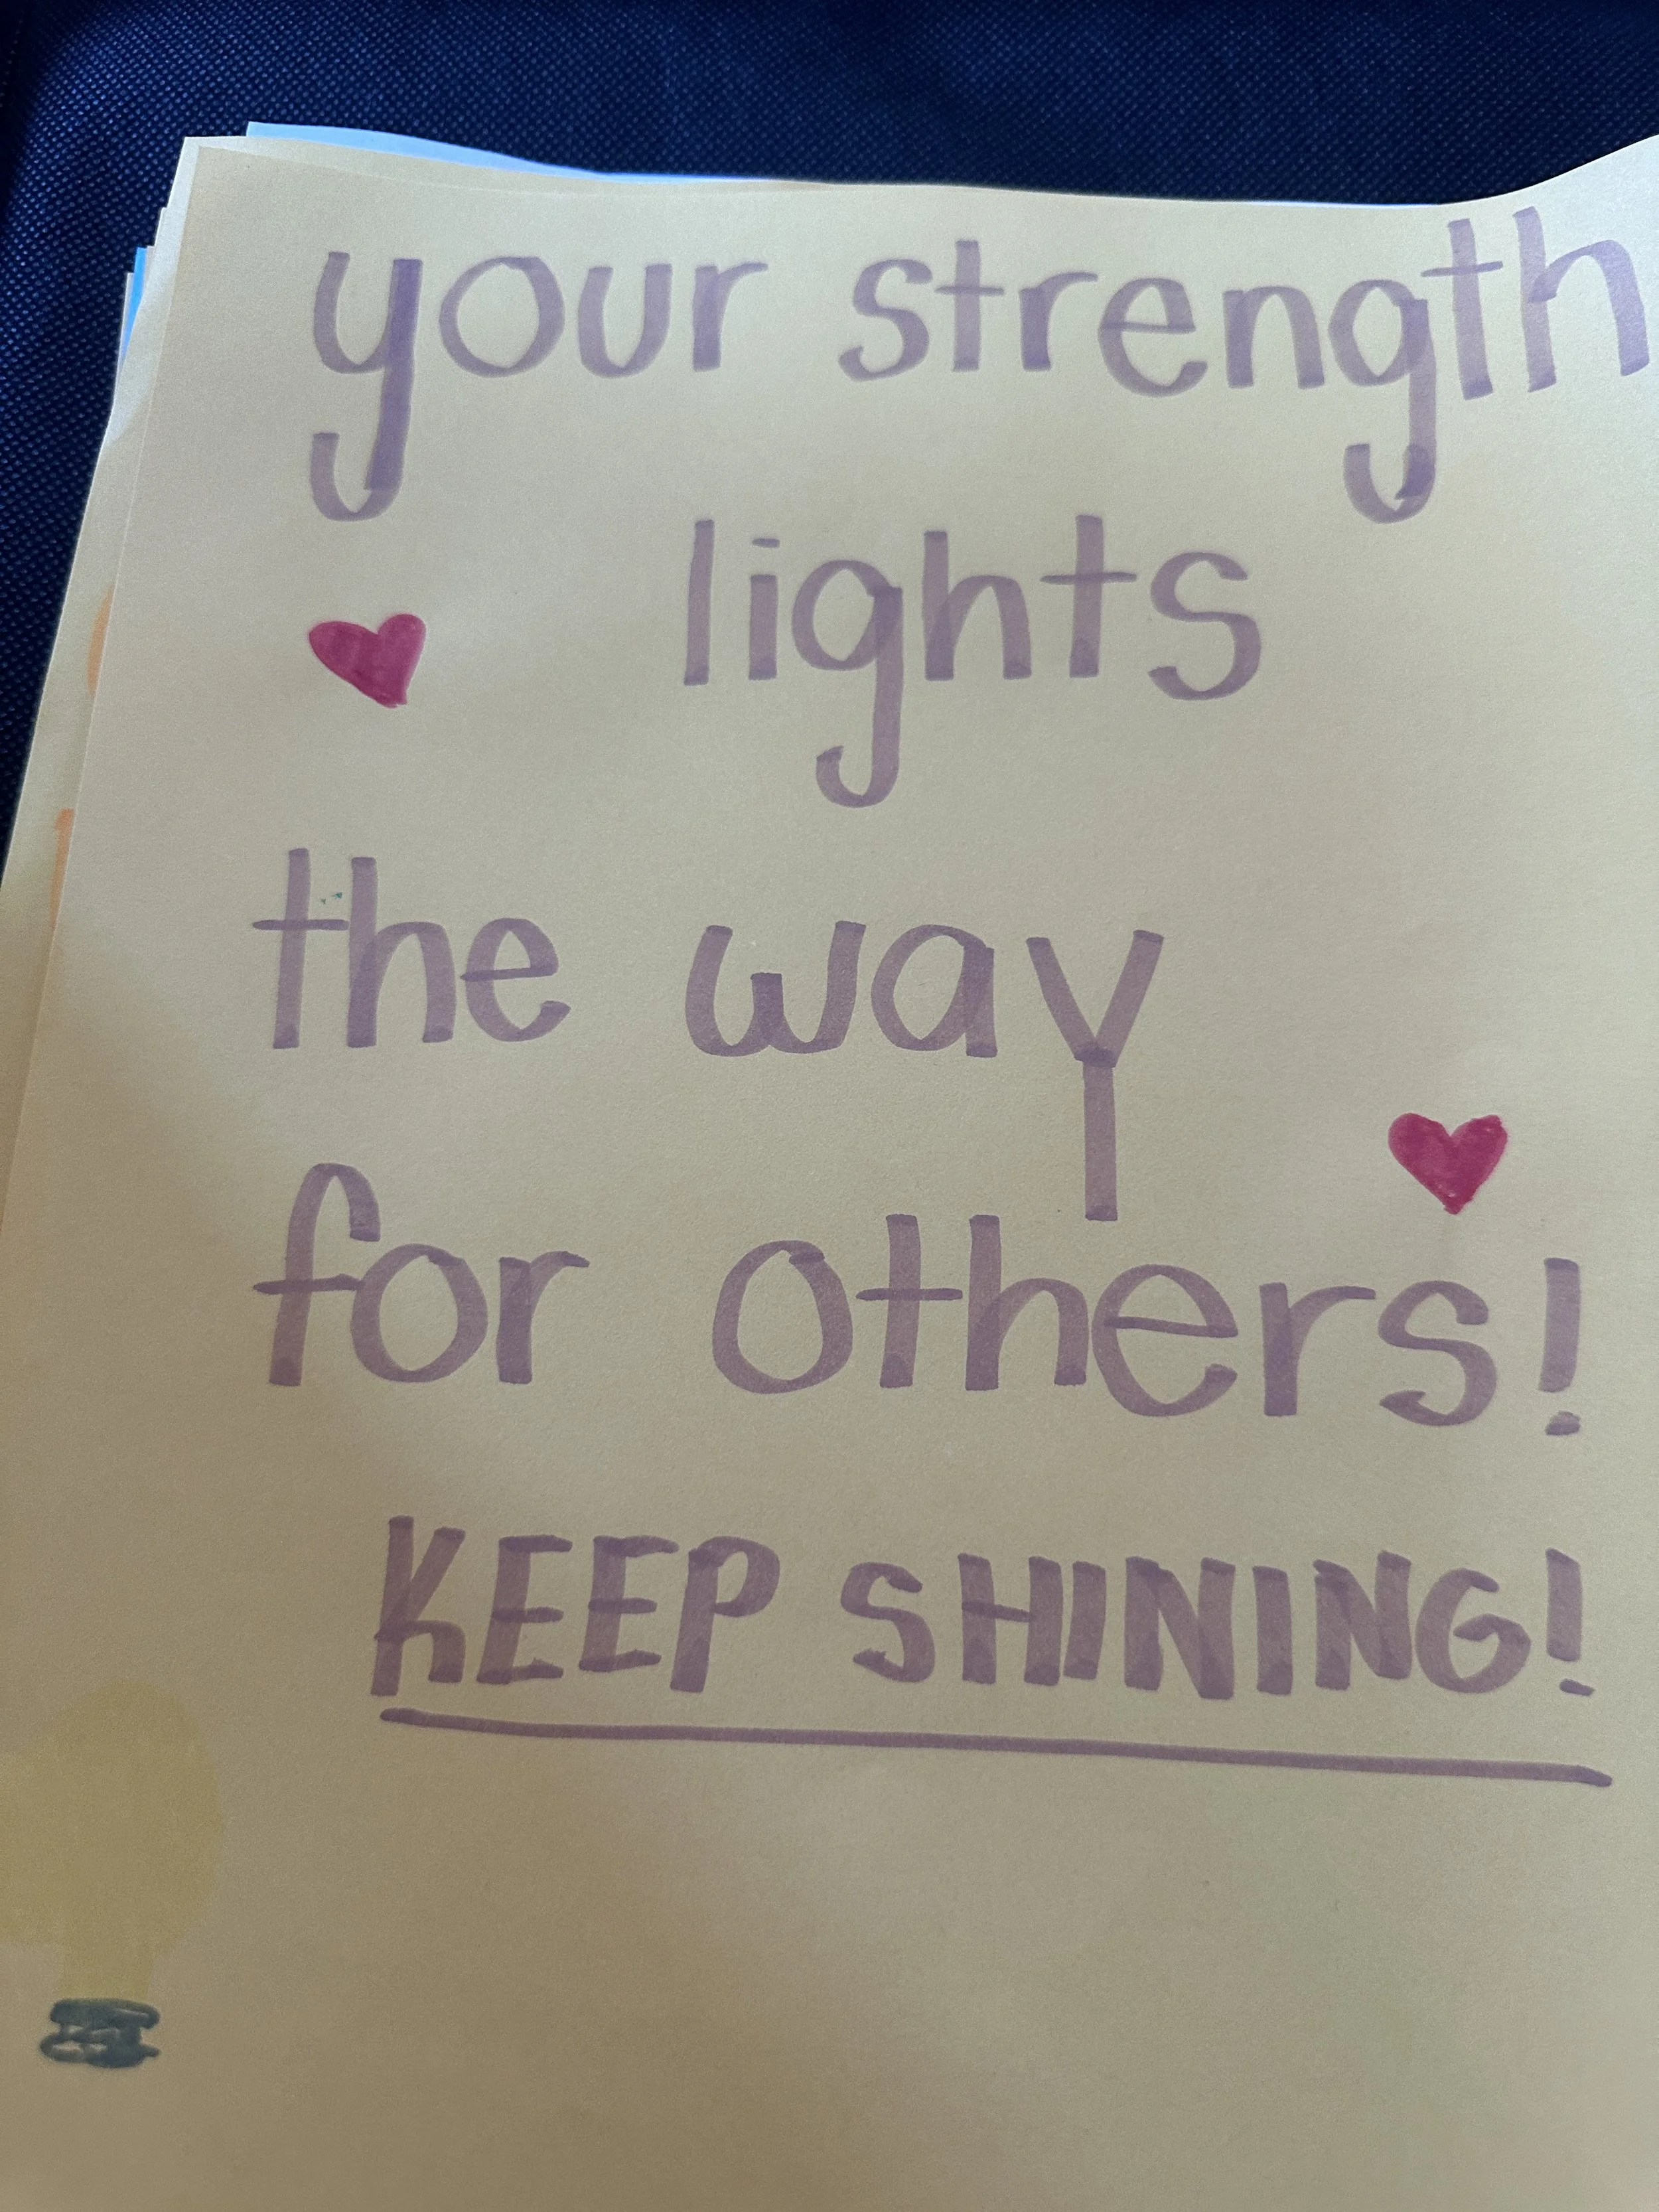 your strength
lights
the way
for others!
KEEP SHINING!